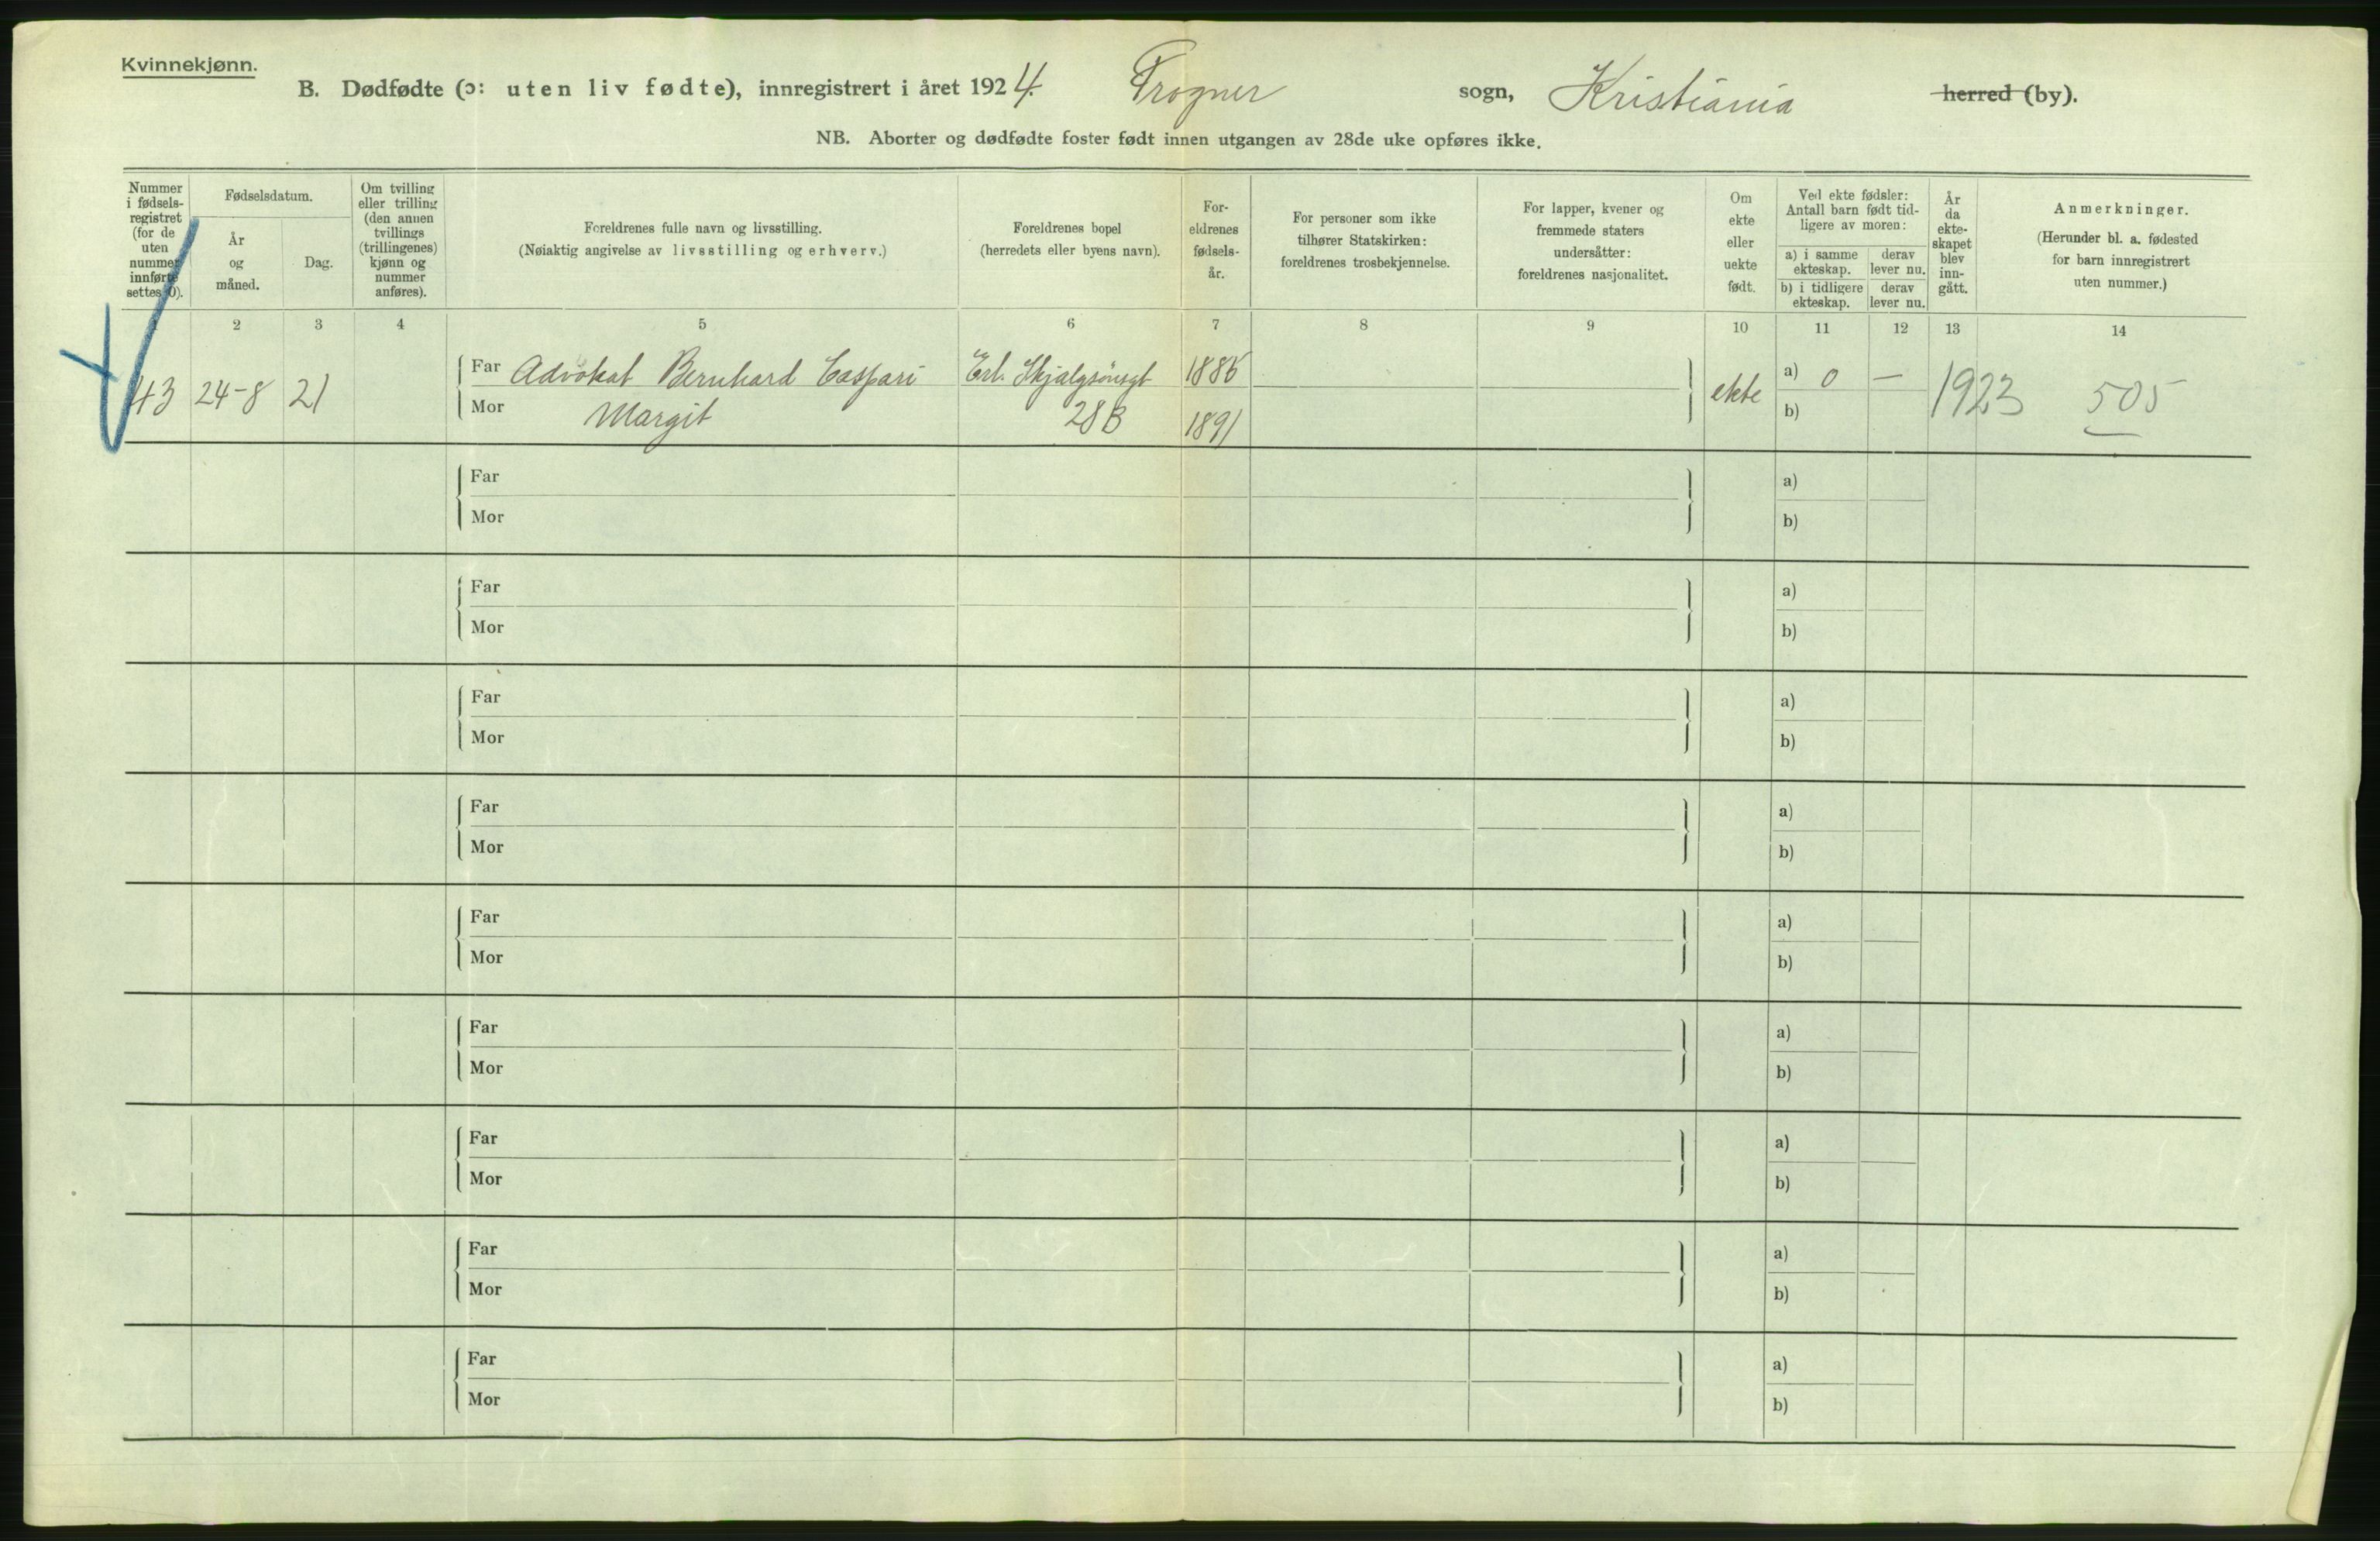 Kvinnekjønn.
B. Dødfødte (ɔ: uten liv fødte), innregistrert i året 1924. Frogner sogn, Kristiania herred (by).
NB. Aborter og dødfødte foster født innen utgangen av 28de uke opføres ikke.
Nummer
i fødsels-
registret
(for de
uten
nummer
innførte
settes 0).
Fødselsdatum.
År
og
måned.
Dag.
Om tvilling
eller trilling
(den annen
tvillings
(trillingenes)
kjønn og
nummer
anføres).
Foreldrenes fulle navn og livsstilling.
(Nøiaktig angivelse av livsstilling og erhverv.)
Foreldrenes bopel
(herredets eller byens navn).
For-
eldrenes
fødsels-
år.
For personer som ikke
tilhører Statskirken:
foreldrenes trosbekjennelse.
For lapper, kvener og
fremmede staters
undersåtter:
foreldrenes nasjonalitet.
Om
ekte
eller
uekte
født.
Ved ekte fødsler:
Antall barn født tid-
ligere av moren:
a) i samme
ekteskap.
derav
lever nu.
b) i tidligere
ekteskap.
derav
lever nu.
År
da
ekte-
skapet
blev
inn-
gått.
Anmerkninger.
(Herunder bl. a. fødested
for barn innregistrert
uten nummer.)
1 2 3 4 5 6 7 8 9 10 11 12 13 14
43 24-8 21
Far Advokat Bernhard Caspari Erl. Skjalgsønsgt 1886
Mor Margit 28B 1891
ekte
a) 0 —
b)
1923 505
Far a)
Mor b)
Far a)
Mor b)
Far a)
Mor b)
Far a)
Mor b)
Far a)
Mor b)
Far a)
Mor b)
Far a)
Mor b)
Far a)
Mor b)
Far a)
Mor b)